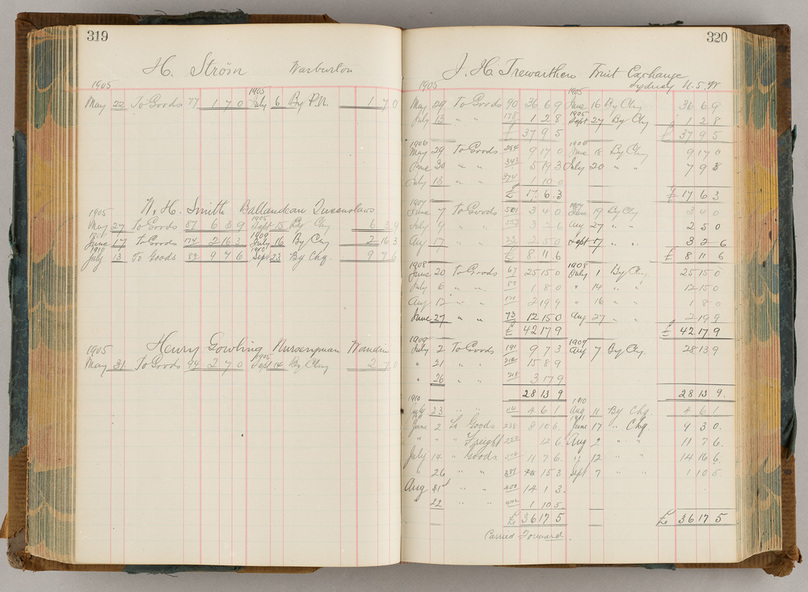 319
H. Ström Warburton
1905 1905
May 22 To Goods 77 1 7 0 July 6 By P.N. 1 7 0
W. H. Smith Queensland
1905 1905
May 27 To Goods 57 6 3 9 Sept 15 By Chq 6 3 9
June 17 To Goods 2 16 3 July 16 By Chq 2 16 3
July 13 To Goods 9 7 6 Sept 23 By Chq. 9 7 6
Henry Gowling Nurseryman Wandin
1905 1905
May 31 To Goods 94 2 7 0 Sept 14 By Chq 2 7
320
J. H. Trewarthen Fruit Exchange
Sydney N.S.W
1905 1905
May 09 To Goods 90 36 6 9 June 16 By Chq 36 6 9
July 13 " " 1 2 8 Sept 27 By Chq 1 2 8
£ 37 9 5 £ 37 9 5
1906 1906
May 29 To Goods 9 17 0 June 18 By Chq 9 17 0
June 30 " " July 20 " " 7 9 3
July 16 " " 1 10
£ 17 6 3 £ 17 6 3
1907 1907
June 7 To Goods 501 3 4 0 June 19 By Chq 3 4 0
July 9 " " 3 2 6 Aug 27 " " 2 5 0
Aug 17 " " 2 5 0 Sept 17 " " 3 2 6
£ 8 11 6 £ 8 11 6
1908 1908
June 20 To Goods 67 25 15 0 July 1 By Chq 25 15 0
July 6 " " 1 8 0 " 14 " " 12 15 0
Aug 12 " " 2 19 9 " 16 " " 1 8 0
June 27 " " 73 12 15 0 Aug 27 " " 2 19 9
£ 42 17 9 £ 42 17 9
1909 1909
July 2 To Goods 191 9 7 3 Aug 7 By Chq 28 13 9
" 21 " " 15 8 9
" 26 " " 3 17 9
28 13 9 28 13 9
1910 1910
July 23 " " 4 6 1 Aug 11 By Chq 4 6 1
June 2 To Goods 8 10 6 June 17 " Chq 9 3 0
" " " Freight 12 6 Aug 2 " " 11 7 6
July 14 " Goods 11 7 6 " 12 " " 14 16 6
" 26 " " Sept 7 " " 1 10 5
Aug " " 14 1 3
" 22 " " 1 10 5
£ 36 17 5 £ 36 17 5
Carried Forward